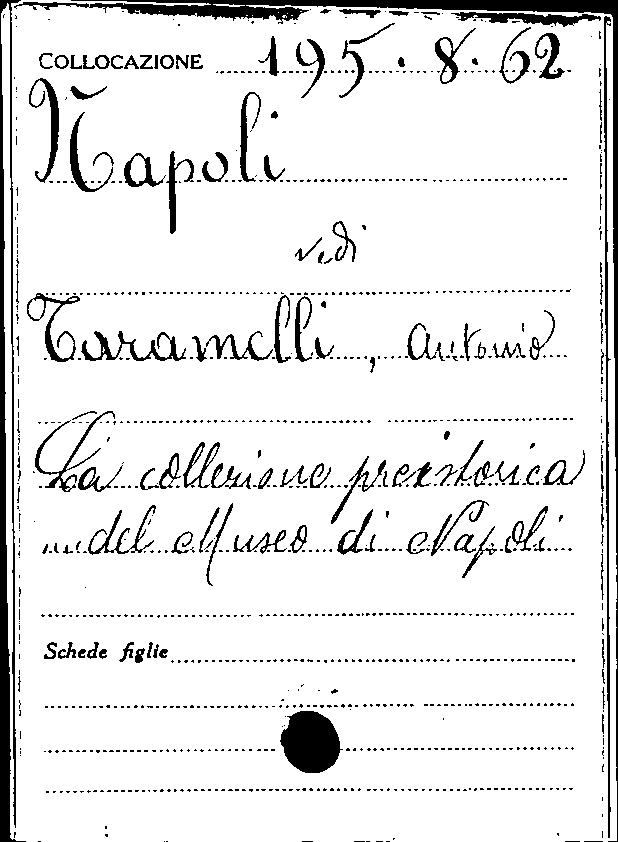 COLLOCAZIONE 195.8.62
Napoli
vedi
Taramelli, Antonio
La collezione preistorica
del Museo di Napoli
Schede figlie